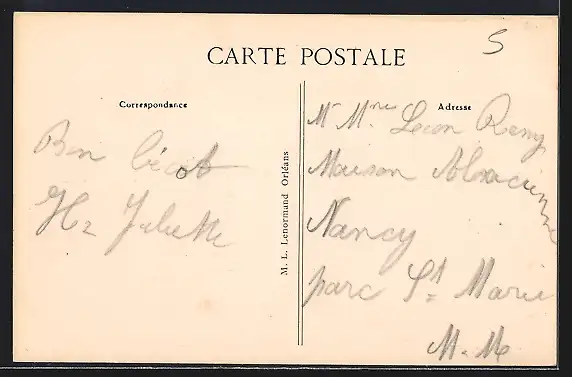 CARTE POSTALE
5
Correspondance
Adresse
Bon
Juliette
M. L. Lenormand Orléans
Mr Mme Léon Remy
Maison Alsacienne
Nancy
parc Ste Marie
M.-M.